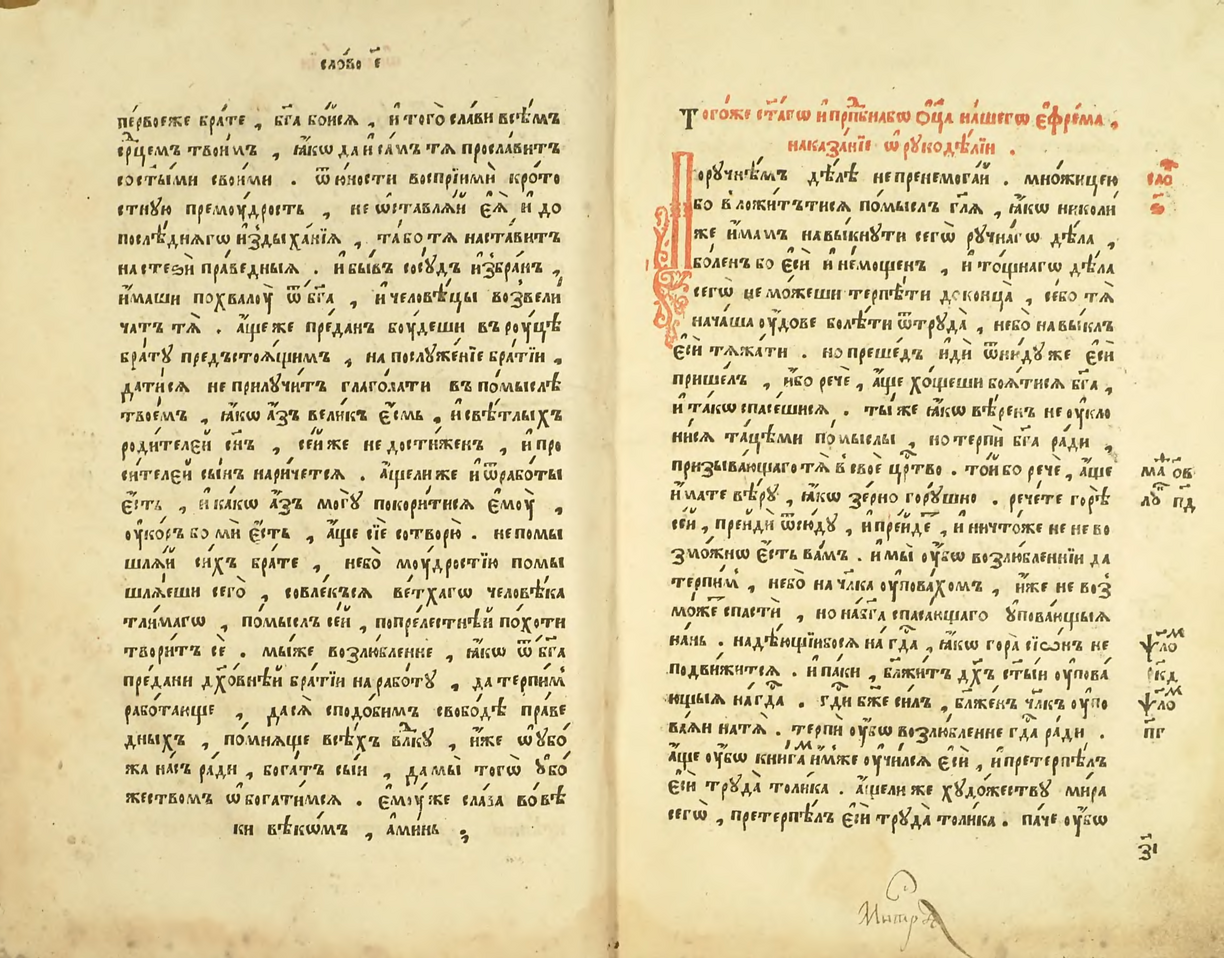 сло́во є҃
пе́рвоеже бра́те , бг҃а бо́йсѧ , и҆ того̀ сла́ви всѣ́мъ
ср҃цемъ твои́мъ , ꙗ҆́кѡ да и҆ са́мъ тѧ просла́витъ
состы́ми свои́ми . ѿ ю҆́ности воспрїимѝ кро́то
стную премоу́дрость , не ѡ҆ставлѧ́й є҆ѧ̀ и҆ до
послѣ́днѧгѡ и҆здыха́нїѧ , та́ бо тѧ наста́витъ
на стезѝ пра́ведныѧ . и҆ бы́въ сосу́дъ и҆збра́нъ ,
и҆́маши похвалоу̀ ѿ бг҃а , и҆ человѣ́цы возвели
ча́тъ тѧ̀ . а҆́ще же пре́данъ боу́деши въ роу́цѣ
бра́ту предъстоѧ́щимъ , на послуже́нїе бра́тїи ,
да ти сѧ не прилучи́тъ глаго́лати въ по́мыслѣ
твое́мъ , ꙗ҆́кѡ а҆́зъ вели́къ є҆́смь , и҆ свѣ́тлыхъ
роди́телей сн҃ъ , се́й же недости́женъ , и҆ про
си́телей сы́нъ нарича́етсѧ . а҆́ще ли же и҆ ѿ рабо́ты
є҆́сть , и҆ ка́кѡ а҆́зъ могу̀ покори́тисѧ є҆моу̀ ,
оу҆ко́ръ бо мѝ є҆́сть , а҆́ще сїѐ сотворю̀ . не помы
шлѧ́й си́хъ бра́те , небо̀ моу́дростїю помы
шлѧ́еши сего̀ , совлекъ́сѧ ве́тхагѡ человѣ́ка
тлѝмагѡ , по́мыслъ се́й , по преле́стнѣй по́хоти
твори́тъ се . мы́ же возлю́бленне , ꙗ҆́кѡ ѿ бг҃а
пре́дани дх҃о́внѣй бра́тїи на рабо́ту , да терпи́мъ
рабо́тающе , да сѧ̀ сподо́бимъ свобо́дѣ пра́ве
дныхъ , по́мнѧще всѣ́хъ влⷣку , и҆́же ѡ҆ убо
жа на́съ ра́ди , бога́тъ сы́й , да мы̀ того̀ ѹ҆бо́
жеством ѡ҆богати́мсѧ . є҆моу́ же сла́ва во вѣ́
ки вѣкѡ́мъ , а҆ми́нь ;
Тогоже ст҃а́гѡ и҆ прпⷣбнагѡ ѻ҆ц҃а на́шегѡ є҆фре́ма ,
наказа́нїе ѡ҆ рукодѣ́лїи .
По ру́чнѣмъ дѣ́лѣ не пренемога́й . мно́жицею
бо вложи́тътисѧ по́мыслъ гл҃ѧ , ꙗ҆́кѡ николи́
же и҆́мамъ навы́кнути сегѡ̀ ру́чнагѡ дѣ́ла ,
бо́ленъ бо є҆сѝ и҆ не́мощенъ , и҆ то́щнагѡ дѣ́ла
сегѡ̀ не мо́жеши терпѣ́ти до конца̀ , се́ бо тѧ̀
нача́ша оу҆́дове болѣ́ти ѿ труда̀ , небо̀ навы́клъ
є҆сѝ тѧжа́ти . но преше́дъ и҆дѝ ѿню́ду же є҆сѝ
прише́лъ , и҆́бо речѐ , а҆́ще хо́щеши боѧ́тисѧ бг҃а ,
и҆ та́кѡ спасе́шисѧ . ты́ же ꙗ҆́кѡ вѣ́ренъ не оу҆кло
ни́сѧ таце́ми по́мыслы , но терпѝ бг҃а ра́ди ,
призыва́ющаго тѧ̀ в своѐ црⷭ҇тво . то́й бо речѐ , а҆́ще
и҆́мате вѣ́ру , ꙗ҆́кѡ зе́рно гору́шно . рече́те горѣ̀
се́й , прейдѝ ѿсю́ду , и҆ пре́йдетъ , и҆ ничто́же не не во
змо́жнѡ є҆́сть ва́мъ . и҆ мы̀ оу҆́бѡ возлю́бленнїи да
терпи́мъ , небо̀ на чл҃ка оу҆пова́хомъ , и҆́же не воз
мо́же спастѝ , но на бг҃а спаса́ющаго ѹ҆пова́ющыѧ
на́нь . надѣ́ющїибосѧ на гдⷭ҇а , ꙗ҆́кѡ гора̀ сїѡ́нъ не
подви́житсѧ . и҆ па́ки , бл҃жи́тъ дх҃ъ ст҃ы́и оу҆пова́
ющыѧ на гдⷭ҇а . гдⷭ҇и бж҃е си́лъ , бл҃же́нъ чл҃къ оу҆по
ва́ѧи на тѧ̀ . терпѝ оу҆́бѡ возлю́бленне гдⷭ҇а ра́ди .
а҆́ще оу҆́бѡ кни́гамъ и҆́мже оу҆чи́лсѧ є҆сѝ , и҆ претерпѣ́лъ
є҆сѝ труда̀ толи́ка . а҆́щели же худо́жеству ми́ра
сегѡ̀ , претерпѣ́лъ є҆сѝ труда̀ толи́ка . па́че оу҆́бѡ
сло
ѕ҃
ма́ ѳв
лу пд
ѱало
рк҃д
ѱало
пг
з҃і